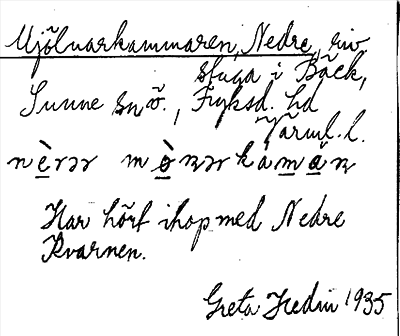 Mjölnarkammaren, Nedre, riv.
stuga i Bäck,
Sunne sn ö., Fryksd. hd
Värml. l.
nèrər mò̱nərkàma̱n
Har hört ihop med Nedre
Kvarnen.
Greta Hedin 1935